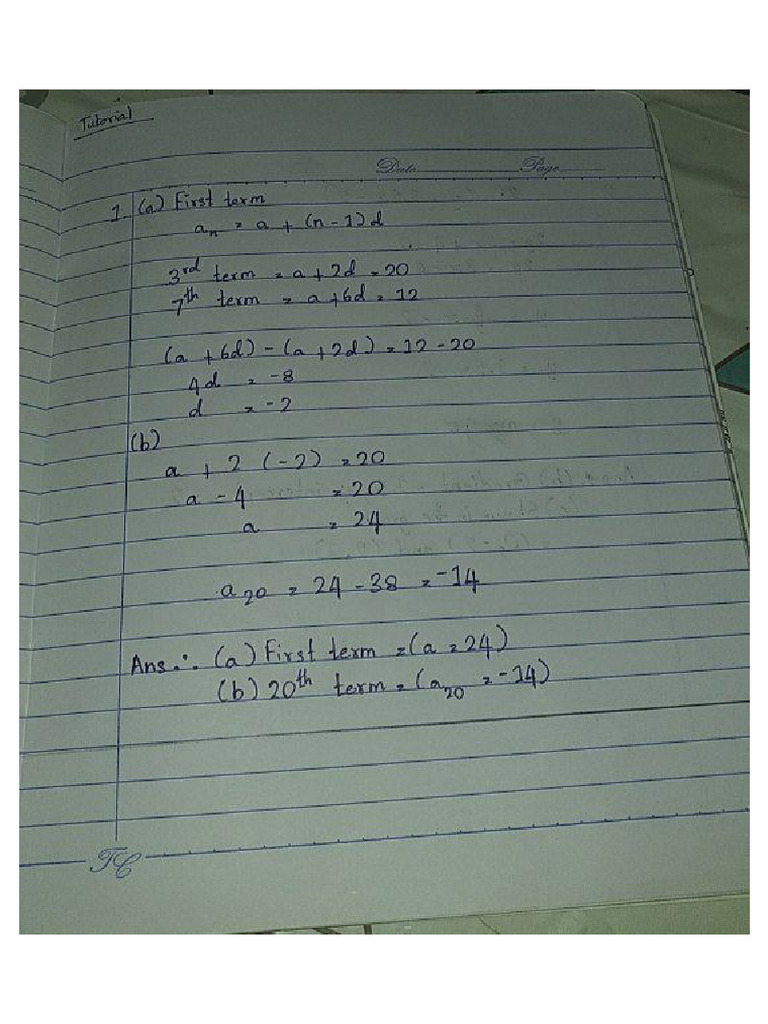 Tutorial
Date Page
1. (a) First term
aₙ = a + (n - 1)d
3rd term = a + 2d = 20
7th term = a + 6d = 12
(a + 6d) - (a + 2d) = 12 - 20
4d = -8
d = -2
(b)
a + 2 (-2) = 20
a - 4 = 20
a = 24
a₂₀ = 24 - 38 = -14
Ans ∴ (a) First term = (a = 24)
(b) 20th term = (a₂₀ = -14)
TC